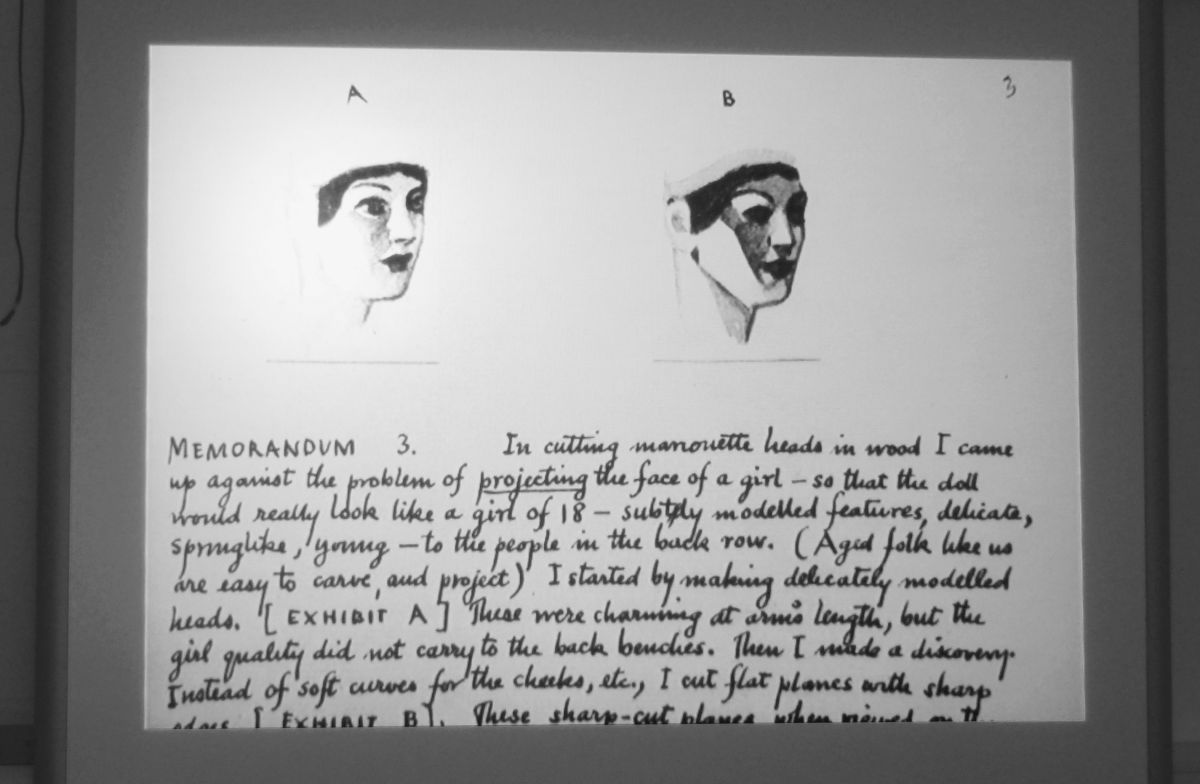 A B 3
MEMORANDUM 3. In cutting marionette heads in wood I came
up against the problem of projecting the face of a girl – so that the doll
would really look like a girl of 18 – subtly modelled features, delicate,
springlike, young – to the people in the back row. (Aged folk like us
are easy to carve, and project) I started by making delicately modelled
heads. [EXHIBIT A] These were charming at arm's length, but the
girl quality did not carry to the back benches. Then I made a discovery.
Instead of soft curves for the cheeks, etc., I cut flat planes with sharp
edges [EXHIBIT B]. These sharp-cut planes when viewed on